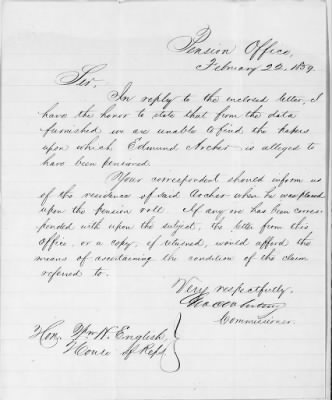 Pension Office,
February 22, 1859.
Sir,
In reply to the enclosed letter, I
have the honor to state that from the data
furnished we are unable to find the papers
upon which Edmund Archer is alleged to
have been pensioned.
Your correspondent should inform us
of the residence of said Archer when he was placed
upon the pension roll. If any one has been corres-
ponded with upon the subject, the letter from this
Office, or a copy, if returned, would afford the
means of ascertaining the condition of the claim
referred to.
Very respectfully,
Commissioner.
Hon. Wm. H. English,
House of Reps